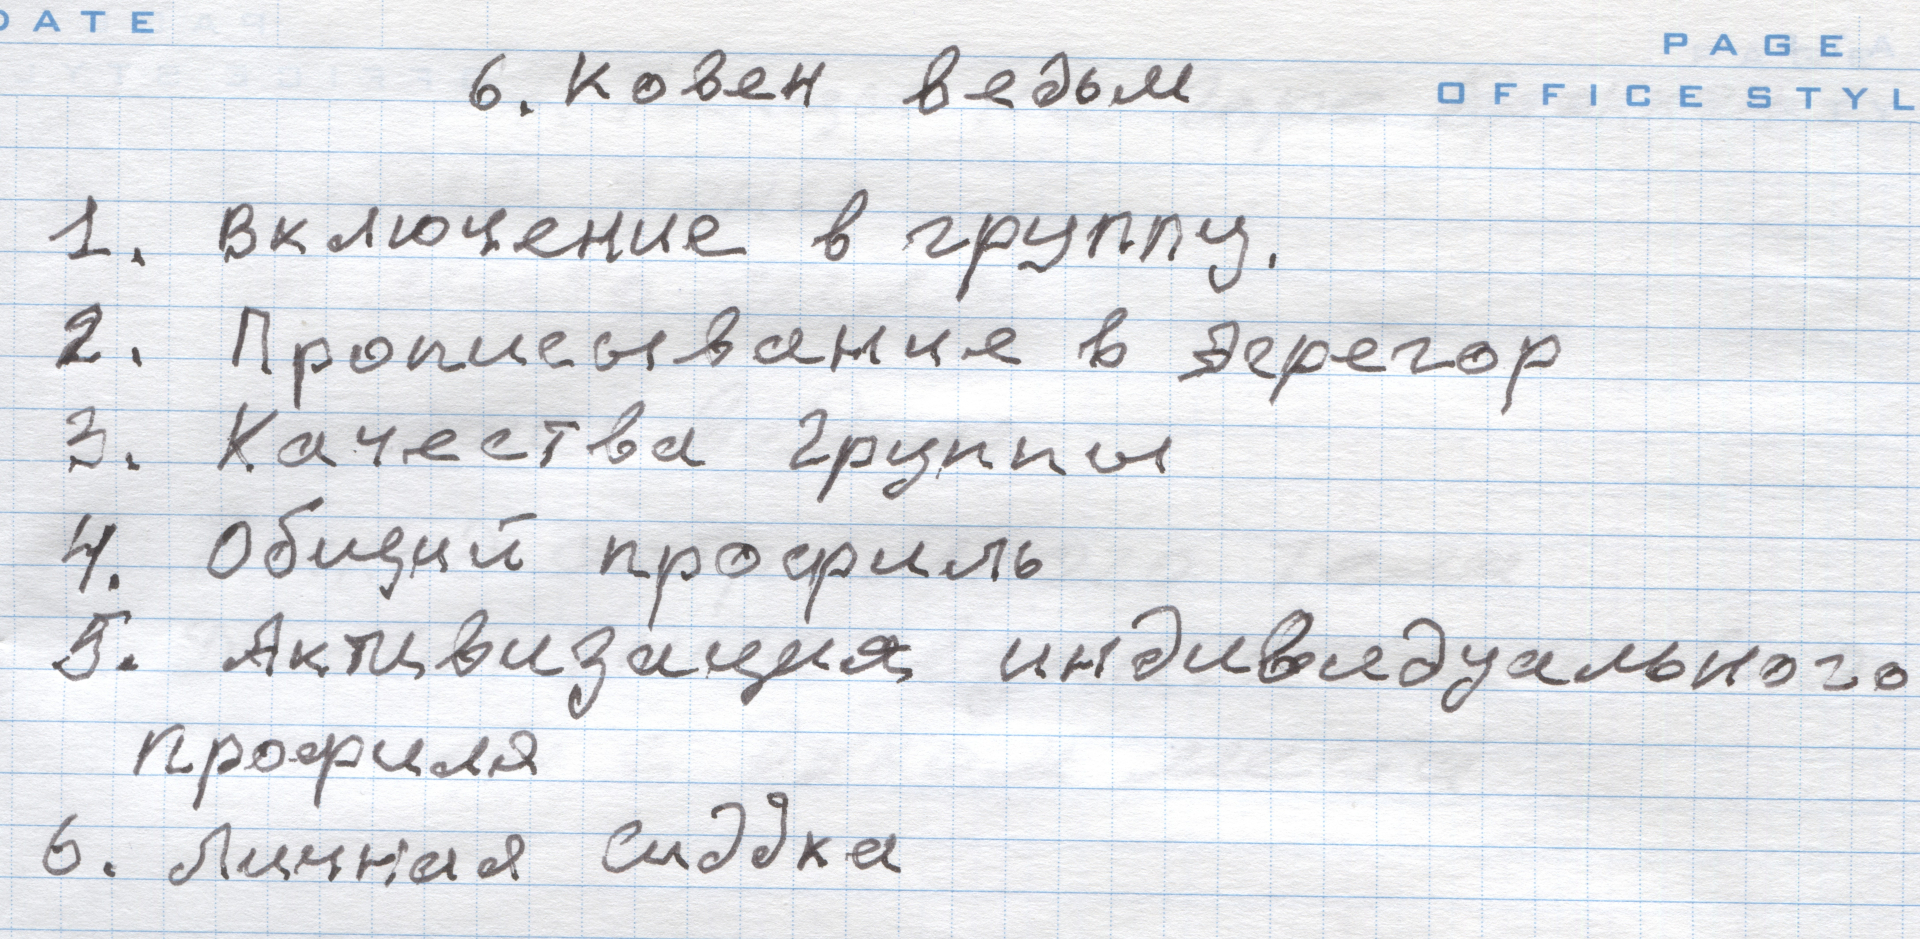 DATE
PAGE
OFFICE STYL
6. Ковен ведьм
1. Включение в группу.
2. Прописывание в Эгрегор
3. Качества группы
4. Общий профиль
5. Активизация индивидуального
профиля
6. Личная Сиддка